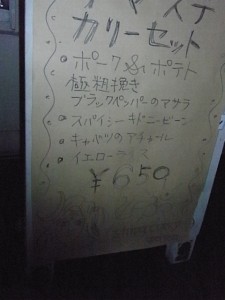 カリーセット
ポーク&ポテト
極粗挽き
ブラックペッパーのマサラ
スパイシーキドニービーン
キャベツのアチャール
イエローライス
¥650